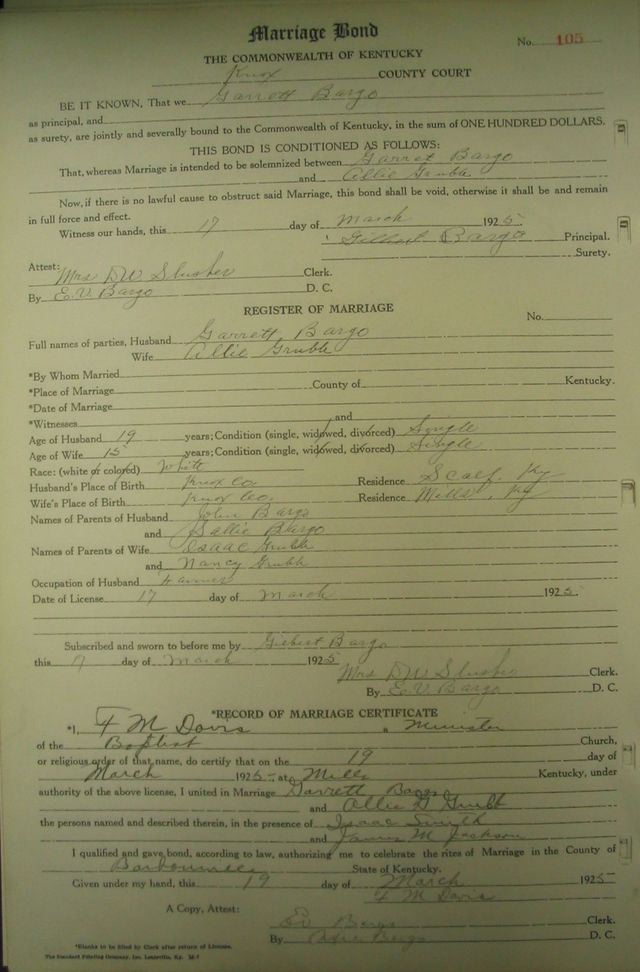 Marriage Bond
No. 105
THE COMMONWEALTH OF KENTUCKY
Knox COUNTY COURT
BE IT KNOWN, That we Garrett Bargo
as principal, and
as surety, are jointly and severally bound to the Commonwealth of Kentucky, in the sum of ONE HUNDRED DOLLARS.
THIS BOND IS CONDITIONED AS FOLLOWS:
That, whereas Marriage is intended to be solemnized between Garret Bargo
and Ollie Grubb
Now, if there is no lawful cause to obstruct said Marriage, this bond shall be void, otherwise it shall be and remain
in full force and effect.
Witness our hands, this 17 day of March 1925
Gilbert Bargo Principal.
Surety.
Attest:
Mrs DW Slusher Clerk.
By E.V. Bargo D. C.
REGISTER OF MARRIAGE
No.
Full names of parties, Husband Garrett Bargo
Wife Ollie Grubb
*By Whom Married
*Place of Marriage County of Kentucky.
*Date of Marriage
*Witnesses and
Age of Husband 19 years; Condition (single, widowed, divorced) Single
Age of Wife 15 years; Condition (single, widowed, divorced) Single
Race: (white or colored) White
Husband's Place of Birth Knox Co. Residence Scalf, Ky
Wife's Place of Birth Knox Co. Residence Mills, Ky
Names of Parents of Husband John Bargo
and Sallie Bargo
Names of Parents of Wife Isaac Grubb
and Nancy Grubb
Occupation of Husband Farmer
Date of License 17 day of March 1925
Subscribed and sworn to before me by Gilbert Bargo
this 7 day of March 1925
Mrs DW Slusher Clerk.
By E.V. Bargo D. C.
*RECORD OF MARRIAGE CERTIFICATE
*I, F M Davis a Minister
of the Baptist Church,
or religious order of that name, do certify that on the 19 day of
March 1925 at Mills Kentucky, under
authority of the above license, I united in Marriage Garrett Bargo
and Ollie Grubb
the persons named and described therein, in the presence of Isaac Smith
and James M Jackson
I qualified and gave bond, according to law, authorizing me to celebrate the rites of Marriage in the County of
Barbourville State of Kentucky.
Given under my hand, this 19 day of March 1925
F M Davis
A Copy, Attest:
Ed Bargo Clerk.
By Bargo D. C.
*Blanks to be filled by Clerk after return of Licenses.
The Standard Printing Company, Inc. Louisville, Ky.